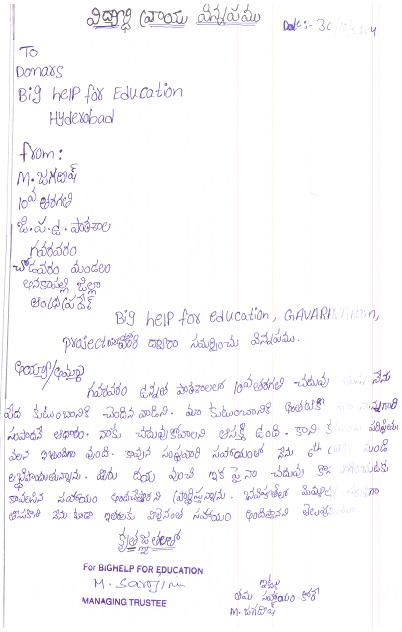 విద్యార్థి వ్రాయు విన్నపము
Date:- 30
To
Donars
Big help for Education
Hyderabad
from:
M. జగదీష్
10వ తరగతి
జి.ప.ఉ. పాఠశాల
గవరవరం
చోడవరం మండలం
అనకాపల్లి జిల్లా
ఆంధ్రప్రదేశ్
Big help for education,
project దారా సమర్పించు విన్నపము.
అయ్యా/అమ్మా
గవరవరం ఉన్నత పాఠశాలలో 10వ తరగతి చదువు నేను
పేద కుటుంబానికి చెందిన వాడిని. మా కుటుంబానికి
సంపాదనే ఆధారం. నాకు చదువుకోవాలని ఆసక్తి ఉంది. కాని
వలన ఇబ్బందిగా వుంది. కావున సంస్థవారి సహాయంతో నేను 6th నుండి
లబ్ధిపొందుతున్నాను. మీరు దయ వుంచి ఇక పై నా చదువు
కావలసిన సహాయం అందచేస్తారని ప్రార్థిస్తున్నాను. భవిష్యత్తులో మిమ్మల్ని
తీసుకొని నేను కూడా ఇతరులకు సహాయం అందిస్తానని
కృతజ్ఞతలతో
For BIGHELP FOR EDUCATION
MANAGING TRUSTEE
ఇట్లు
తమ సహాయం కోరే
M. జగదీష్